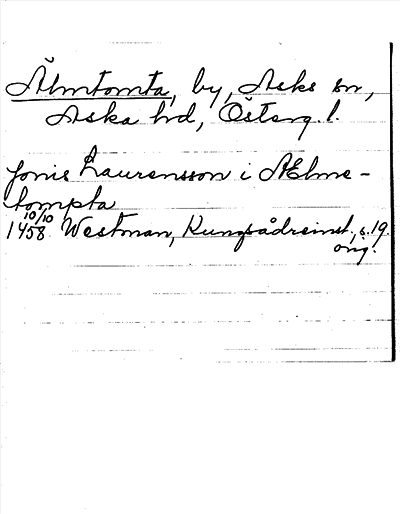 Älmtomta, by, Asks sn,
Aska hd, Österg. l.
Jonis Laurensson i Ælme-
tompta
10/10
1458 Westman, Kungsådreinst., s. 19.
orig.